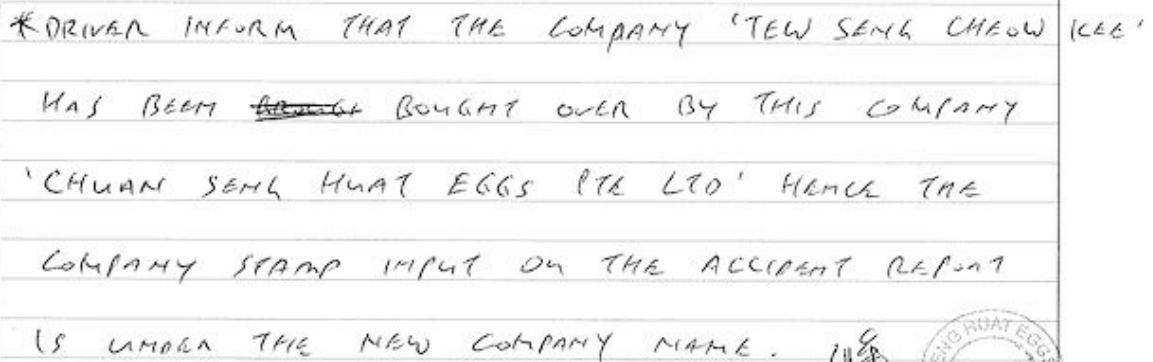 *DRIVER INFORM THAT THE COMPANY 'TEW SENG CHEOW KEE'
HAS BEEN BOUGHT OVER BY THIS COMPANY
'CHUAN SENG HUAT EGGS PTE LTD' HENCE THE
COMPANY STAMP INPUT ON THE ACCIDENT REPORT
IS UNDER THE NEW COMPANY NAME.
ENG HUAT EGGS